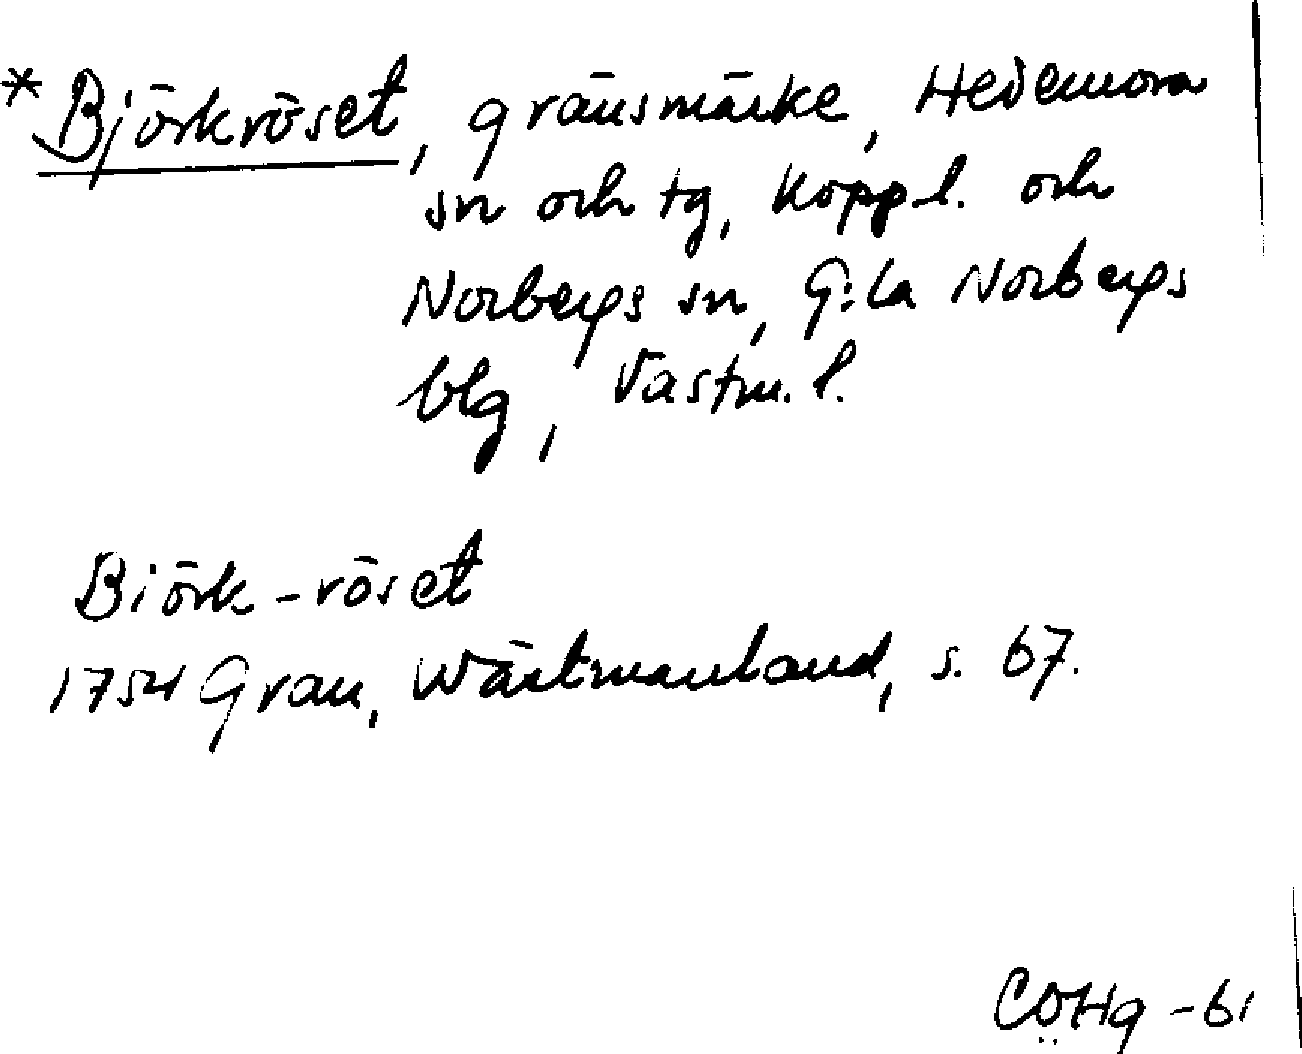 *Björkröset, gränsmärke, Hedemora
sn och tg, Kopp.l. och
Norbergs sn, G:la Norbergs
blg, Västm.l.
Biörk-röset
1754 Grau, Wästmanland, s. 67.
CÖHg -61